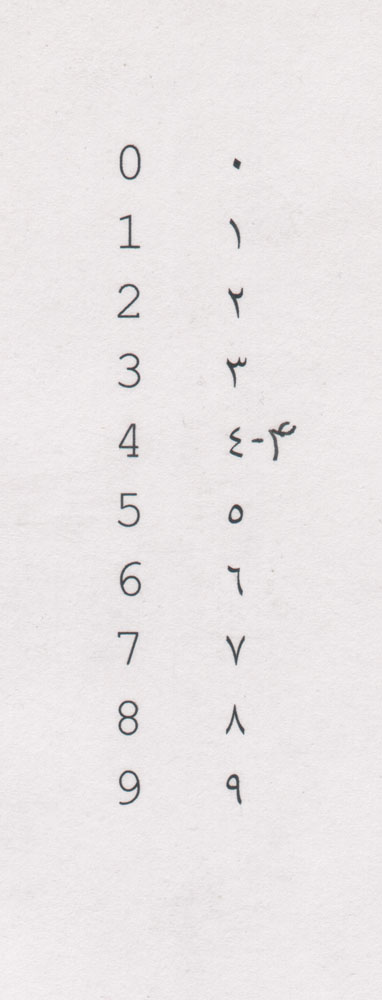 0 ٠
1 ١
2 ٢
3 ٣
4 ٤-۴
5 ٥
6 ٦
7 ٧
8 ٨
9 ٩